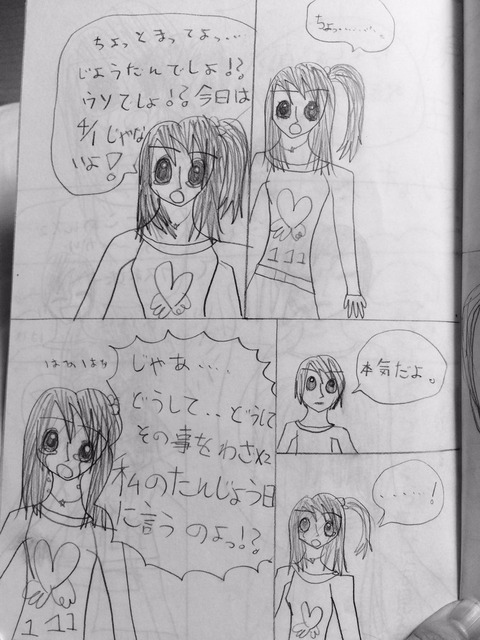 ちょっ・・・・・。
111
ちょっとまってよっ・・・
じょうたんでしょ!?
ウソでしょ!?今日は
4/1じゃな
いよ!
本気だよ。
・・・・・!
じゃあ・・・・
どうして・・どうして
その事をわざ×2
私のたんじょう日
に言うのよっ!?
はぁはぁ
1 11